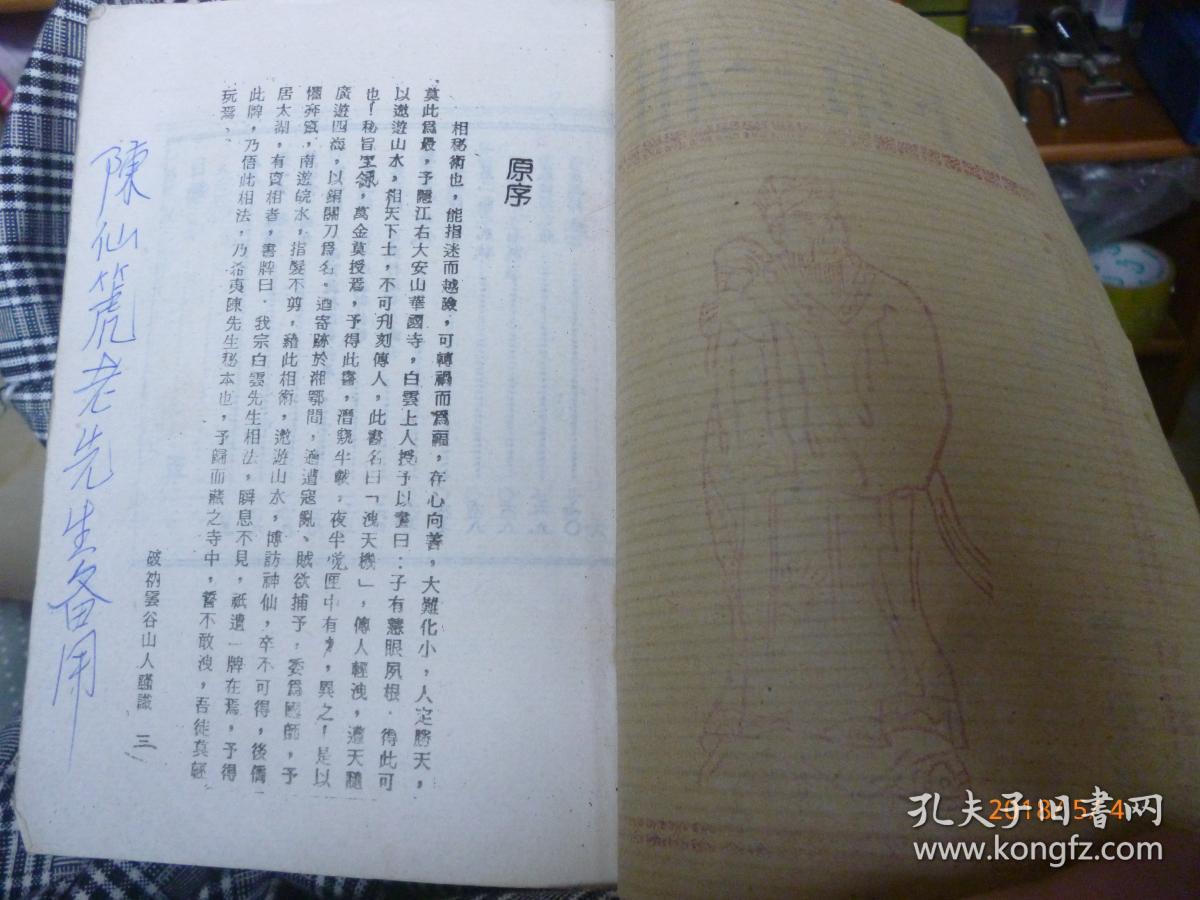 原序
相秘術也，能指迷而越險，可轉禍而為福，在心向善，大難化小，人定勝天，
莫此爲最，予隱江右大安山華國寺，白雲上人授予以書曰：子有慧眼夙根．得此可
以遨遊山水，相天下士，不可刋刻傳人，此書名曰「洩天機」，傳人輕洩，遭天譴
也！秘旨，萬金莫授焉，予得此書，潛窺半載，夜半覺匣中有，異之！是以
廣遊四海，以刀為名。寄跡於湘鄂間，適遭寇亂、賊欲捕予，委爲國師，予
南遊皖水，指髮不剪，藉此相術，遨遊山水，博訪神仙，卒不可得，後僑
居太湖，有賣相者，書牌曰．我宗白雲先生相法，瞬息不見，祇遺一牌在焉，予得
此牌，乃悟此相法，乃希夷陳先生秘本也，予歸而藏之寺中，誓不敢洩，吾徒莫輕
玩焉、
破衲雲谷山人謹識
三
陳仙篪老先生备用
孔夫子旧书网
www.kongfz.com